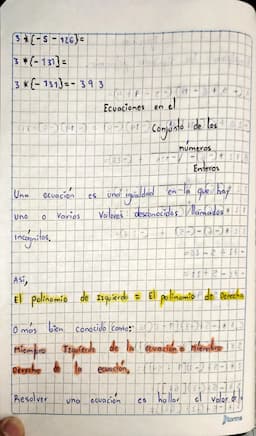 3 * (-5 - 126) =
3 * (- 131) =
3 * (- 131) = - 393
Ecuaciones en el
Conjunto de los
números
Enteros
Una ecuación es una igualdad en la que hay
uno o varios valores desconocidos llamados
incognitos.
Así,
El polinomio de Izquierdo = El polinomio de Derecha
O más bien conocido como:
Miembro Izquierdo de la ecuación = Miembro
Derecho de la ecuación.
Resolver una ecuación es hallar el valor de
norma